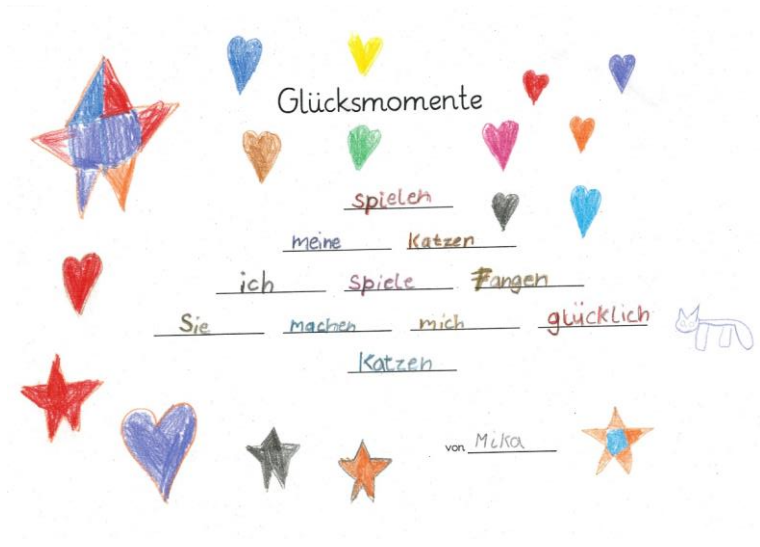 Glücksmomente
spielen
meine Katzen
ich spiele Fangen
Sie machen mich glücklich
Katzen
von Mika